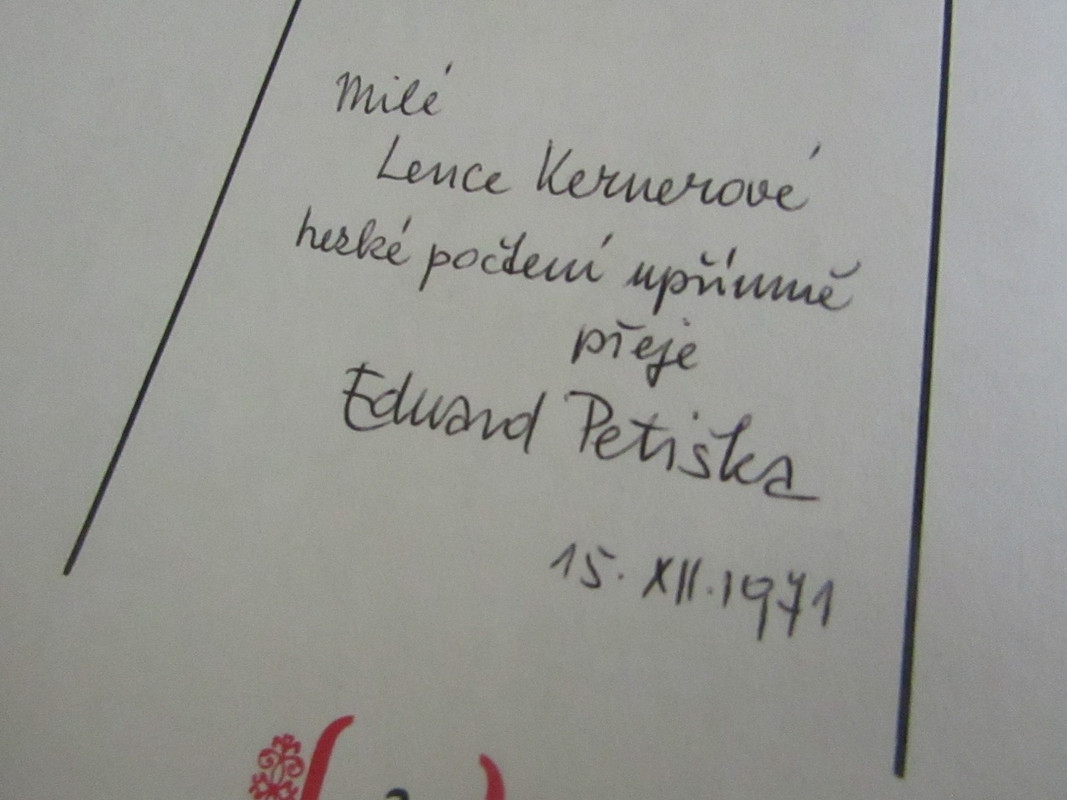 Milé
Lence Kernerové
hezké počtení upřímně
přeje
Eduard Petiška
15. XII. 1971